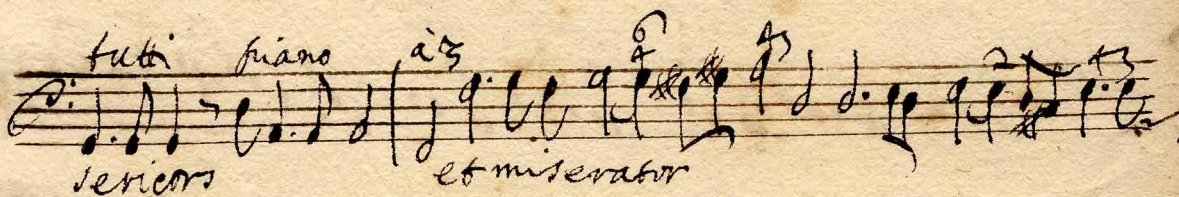 tutti piano à 3 6 4 43 2 43
sericors et miserator